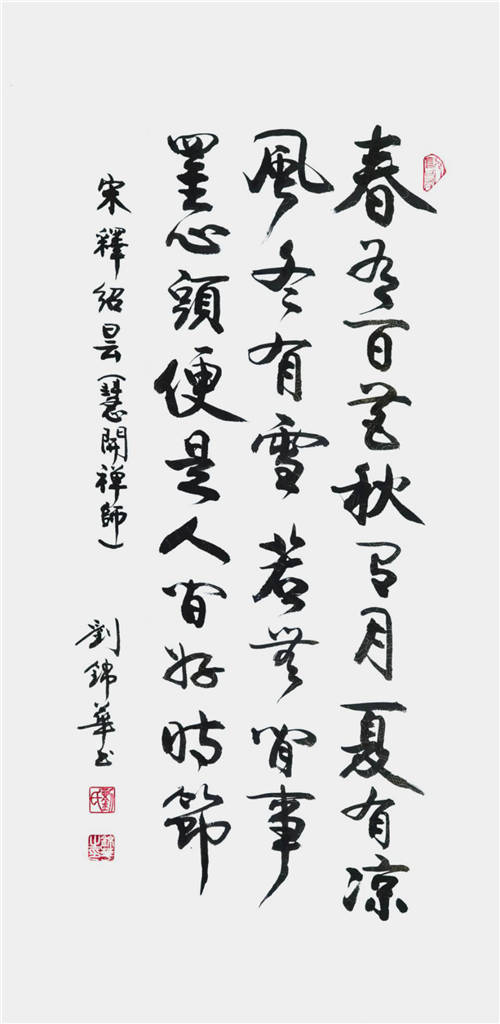 春有百花秋有月夏有凉
風冬有雪若無閒事
罣心頭便是人間好時節
宋釋紹曇（慧開禅師）
劉錦華书